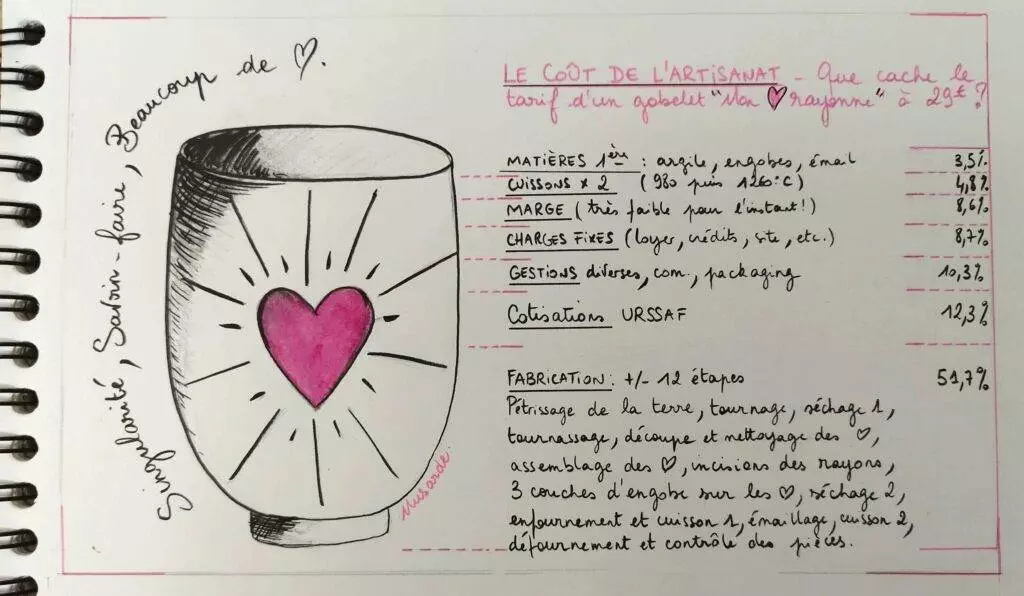 Singularité, Savoir-faire, Beaucoup de ♡.
LE COÛT DE L'ARTISANAT - Que cache le
tarif d'un gobelet "Mon ♥ rayonne" à 29€?
MATIÈRES 1ère : argile, engobes, émail 3,5%
CUISSONS x 2 (980 puis 1260°C) 4,8%
MARGE (très faible pour l'instant!) 8,6%
CHARGES FIXES (loyer, crédits, site, etc.) 8,7%
GESTIONS diverses, com., packaging 10,3%
Cotisations URSSAF 12,3%
FABRICATION: +/- 12 étapes 51,7%
Pétrissage de la terre, tournage, séchage 1,
tournassage, découpe et nettoyage des ♡,
assemblage des ♡, incisions des rayons,
3 couches d'engobe sur les ♡, séchage 2,
enfournement et cuisson 1, émaillage, cuisson 2,
défournement et contrôle des pièces.
Musarde